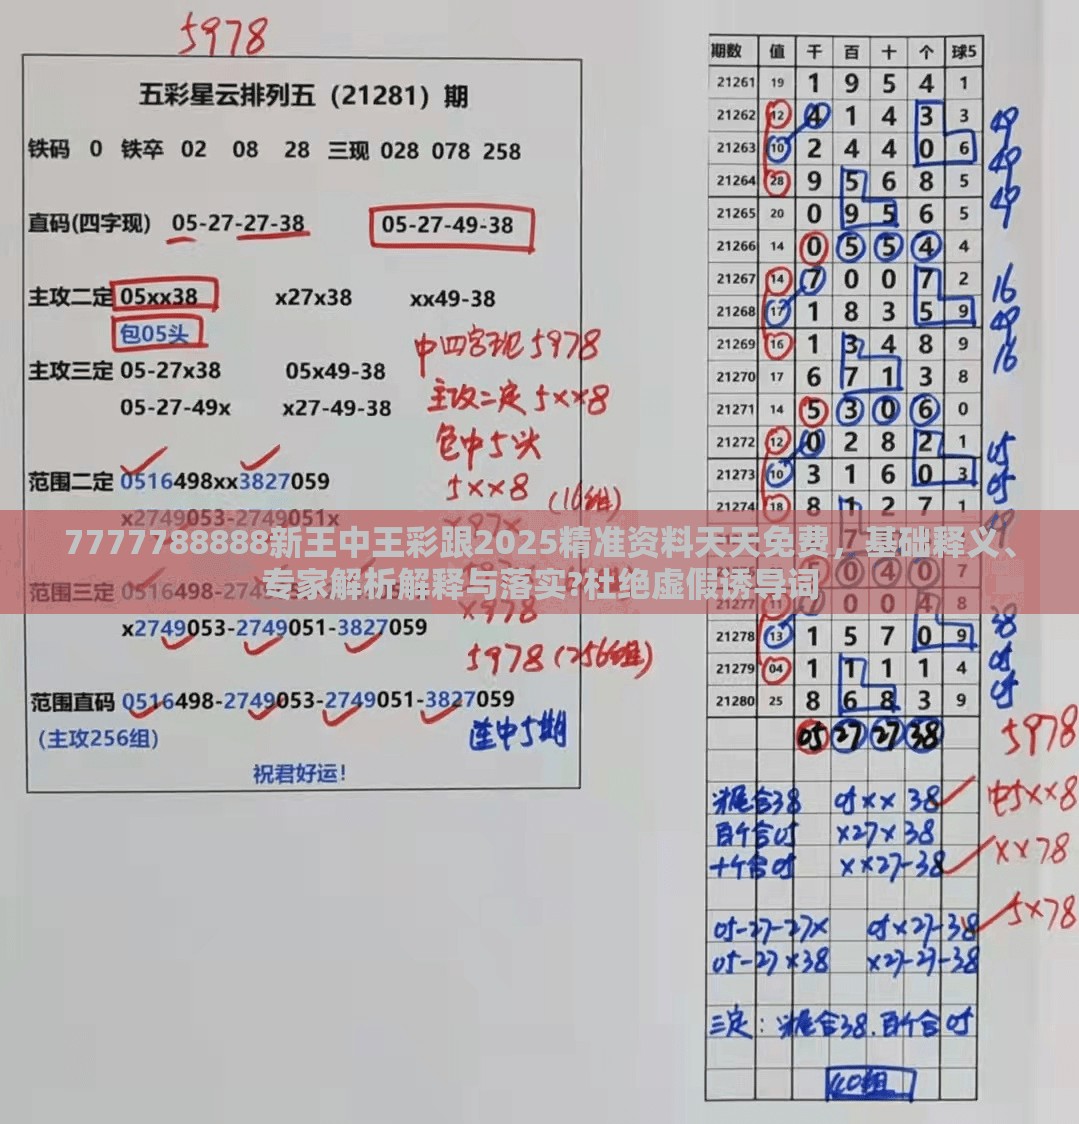 5978
五彩星云排列五（21281）期
铁码 0 铁卒 02 08 28 三现 028 078 258
直码(四字现) 05-27-27-38 05-27-49-38
主攻二定 05xx38 x27x38 xx49-38
包05头
主攻三定 05-27x38 05x49-38
05-27-49x x27-49-38
中四字现5978
主攻二定5××8
包中5头
5××8 (16组)
范围二定 0516498xx3827059
x2749053-2749051x
×97×
7777788888新王中王彩跟2025精准资料天天免费，基础释义、
专家解析解释与落实?杜绝虚假诱导词
范围三定
x2749053-2749051-3827059
×978
5978 (256组)
范围直码 0516498-2749053-2749051-3827059
(主攻256组)
连中5期
祝君好运！
期数 值 千 百 十 个 球5
21261 19 1 9 5 4 1
21262 12 4 1 4 3 3 49
21263 10 2 4 4 0 6 49
21264 28 9 5 6 8 5 49
21265 20 0 9 5 6 5
21266 14 0 5 5 4 4
21267 14 7 0 0 7 2 16
21268 17 1 8 3 5 9 49
21269 16 1 3 4 8 9 16
21270 17 6 7 1 3 8
21271 14 5 3 0 6 0
21272 12 0 2 8 2 1 05
21273 10 3 1 6 0 3 05
21274 18 8 1 2 7 1 49
0 4 0 7
21277 11 0 0 4 8
21278 13 1 5 7 0 9 38
21279 04 1 1 1 1 4 05
21280 25 8 6 8 3 9 05
05 27 27 38 5978
头尾合38 05×× 38 中5××8
百个合05 ×27×38
十个合05 ××27-38 ××78
05-27-27× 05×27-38 5×78
05-27×38 ×27-27-38
三定：头尾合38.百个合05
40组